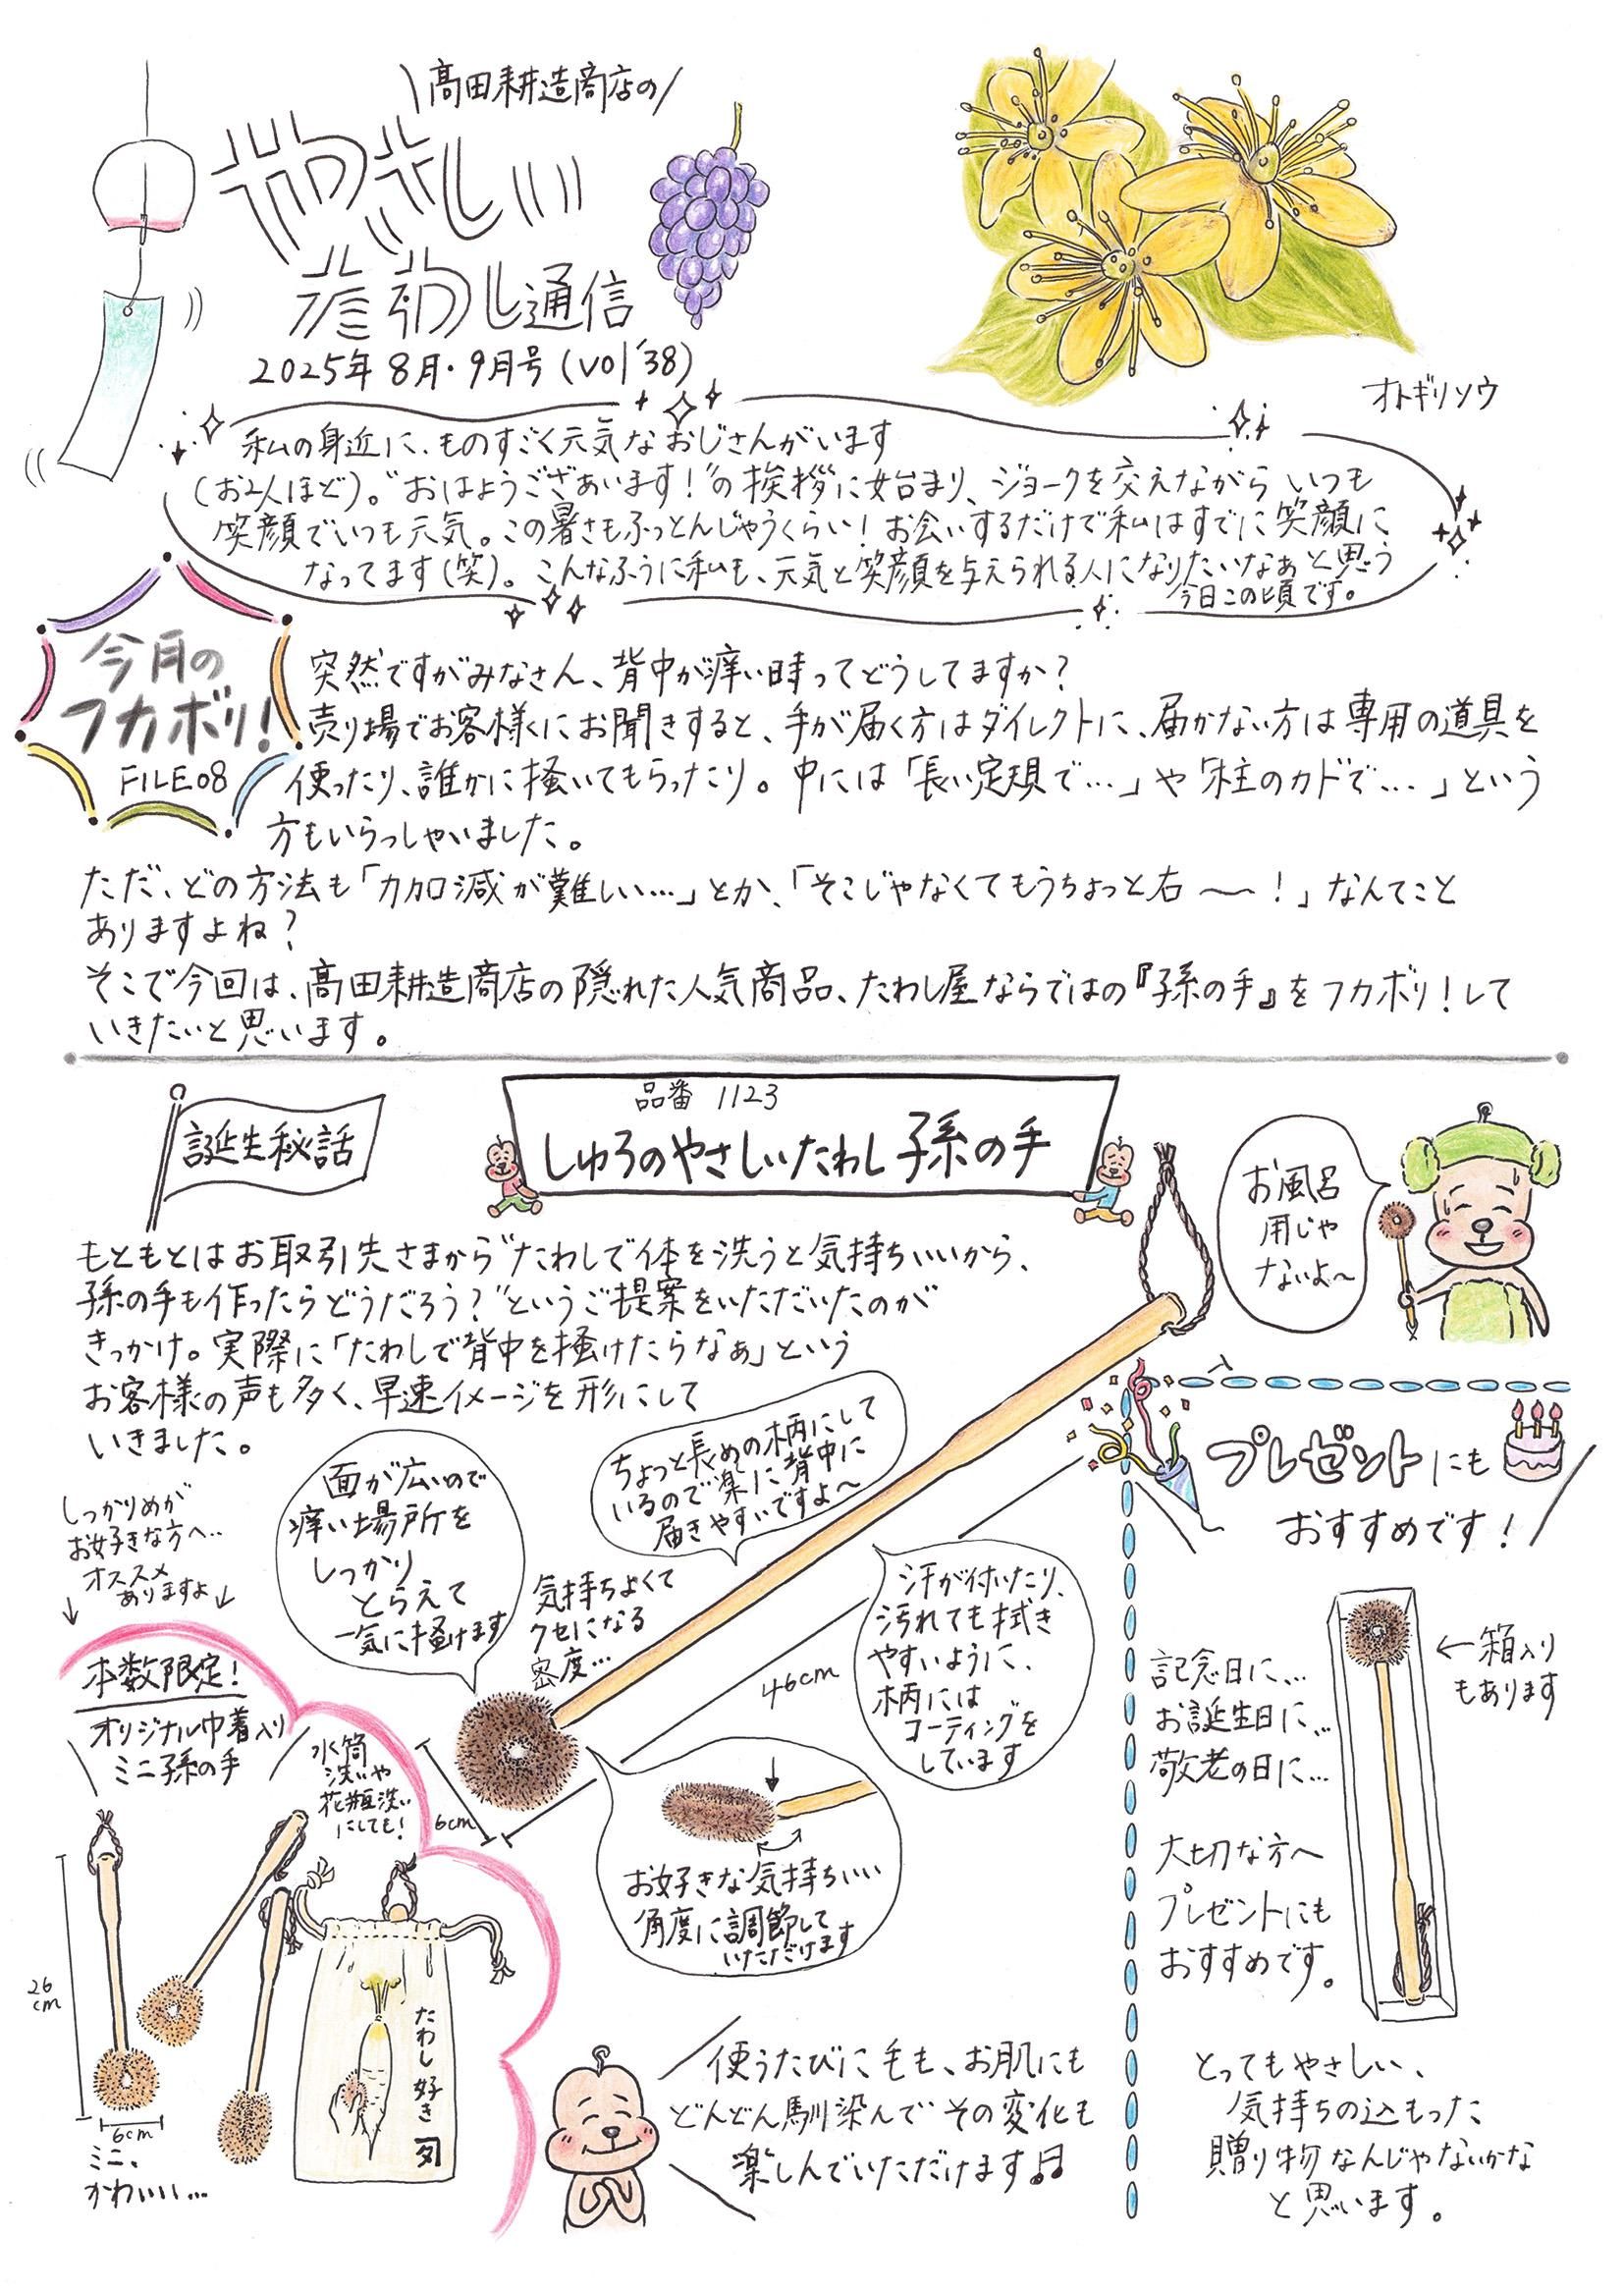 髙田耕造商店の
やさしい
たわし通信
2025年 8月・9月号 (vol'38)
オトギリソウ
私の身近に、ものすごく元気なおじさんがいます
(お2人ほど)。"おはようござあいます!"の挨拶に始まり、ジョークを交えながら いつも
笑顔でいつも元気。この暑さもふっとんじゃうくらい! お会いするだけで私はすでに笑顔に
なってます(笑)。こんなふうに私も、元気と笑顔を与えられる人になりたいなぁと思う
今日この頃です。
今月の
フカボリ!
FILE08
突然ですがみなさん、背中が痒い時ってどうしてますか?
売り場でお客様にお聞きすると、手が届く方はダイレクトに、届かない方は専用の道具を
使ったり、誰かに掻いてもらったり。中には「長い定規で…」や「柱のカドで…」という
方もいらっしゃいました。
ただ、どの方法も「力加減が難しい…」とか、「そこじゃなくてもうちょっと右〜〜!」なんてこと
ありますよね?
そこで今回は、髙田耕造商店の隠れた人気商品、たわし屋ならではの『孫の手』をフカボリ!して
いきたいと思います。
誕生秘話
品番 1123
しゅろのやさしいたわし 孫の手
お風呂
用じゃ
ないよ〜
もともとはお取引先さまから"たわしで体を洗うと気持ちいいから、
孫の手も作ったらどうだろう?"というご提案をいただいたのが
きっかけ。実際に「たわしで背中を掻けたらなぁ」という
お客様の声も多く、早速イメージを形にして
いきました。
面が広いので
痒い場所を
しっかり
とらえて
一気に掻けます
ちょっと長めの柄にして
いるので楽に背中に
届きやすいですよ〜
気持ちよくて
クセになる
密度…
汗が付いたり、
汚れても拭き
やすいように、
柄には
コーティングを
しています
46cm
6cm
お好きな気持ちいい
角度に調節して
いただけます
しっかりめが
お好きな方へ…
オススメ
ありますよ
本数限定!
オリジナル巾着入り
ミニ孫の手
水筒
洗いや
花瓶洗い
にしても!
26
cm
6cm
ミニ、
かわいい…
たわし好き
使うたびに毛も、お肌にも
どんどん馴染んで その変化も
楽しんでいただけます♫
プレゼントにも
おすすめです!
←箱入り
もあります
記念日に…
お誕生日に…
敬老の日に…
大切な方へ
プレゼントにも
おすすめです。
とってもやさしい、
気持ちの込もった
贈り物なんじゃないかな
と思います。